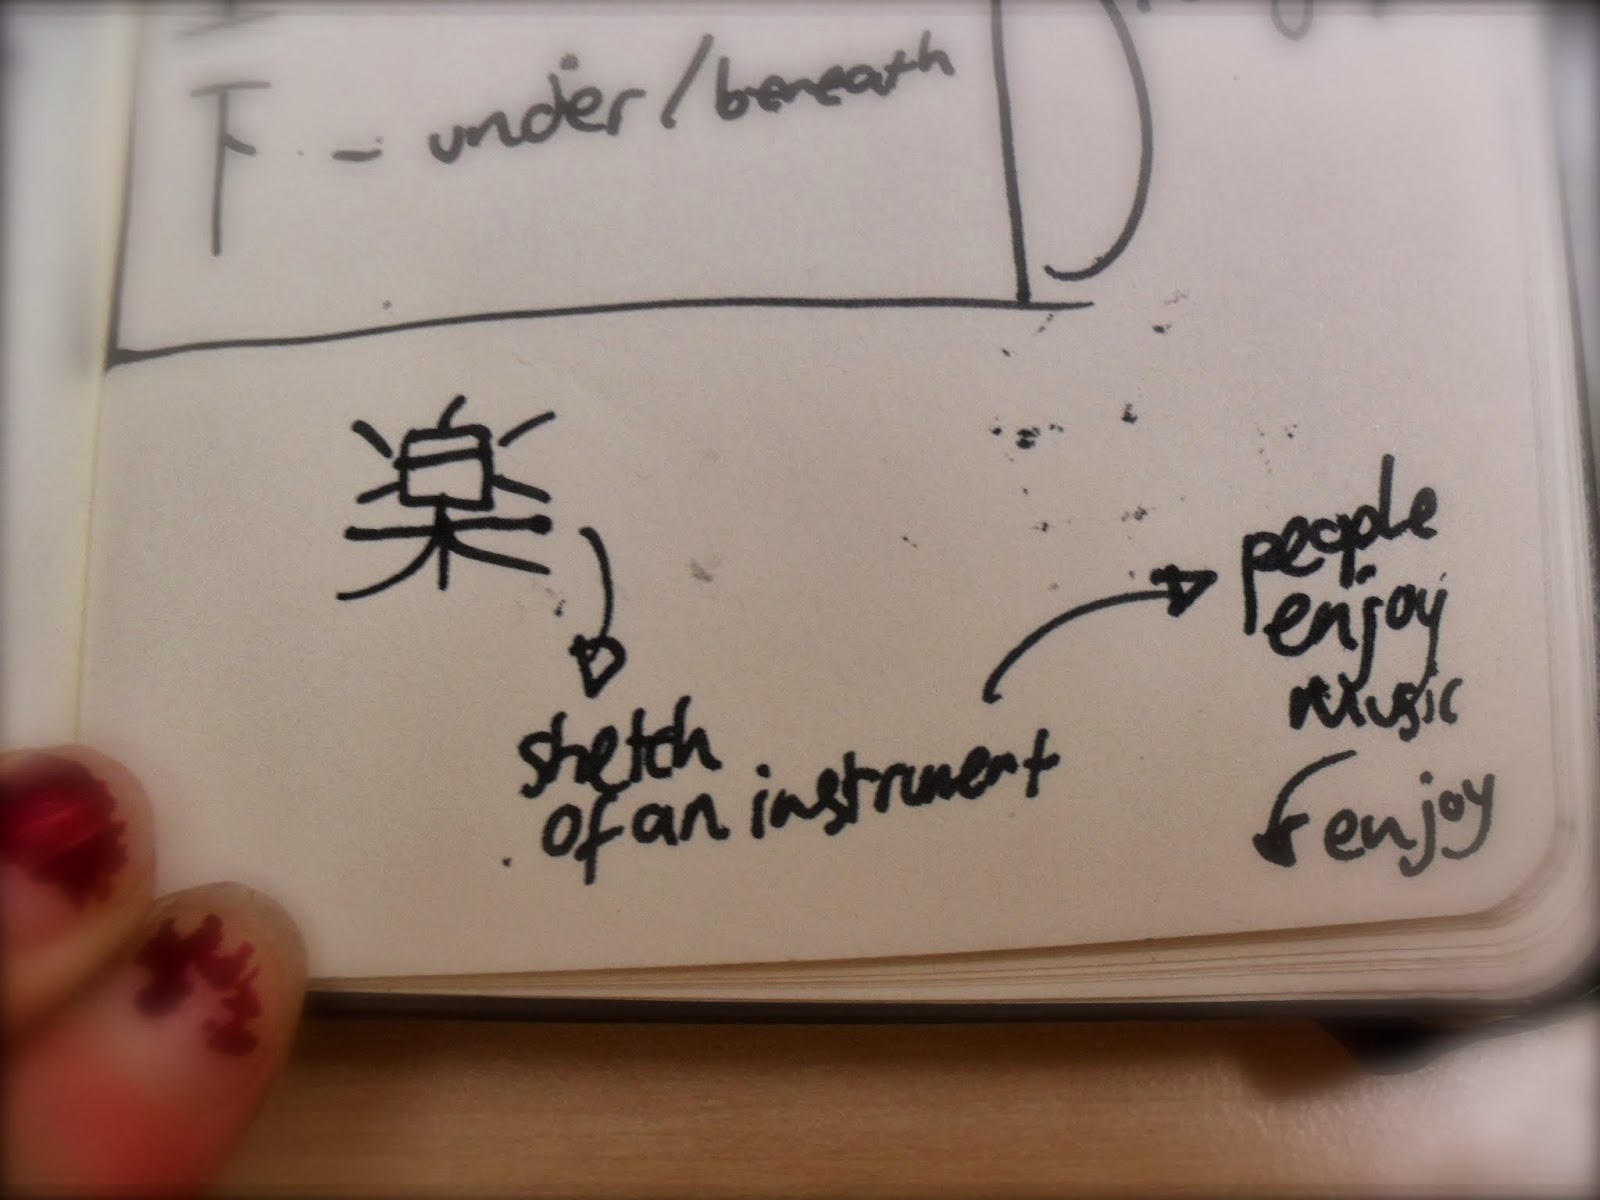 下 - under/beneath
楽
sketch
of an instrument
people
enjoy
music
enjoy